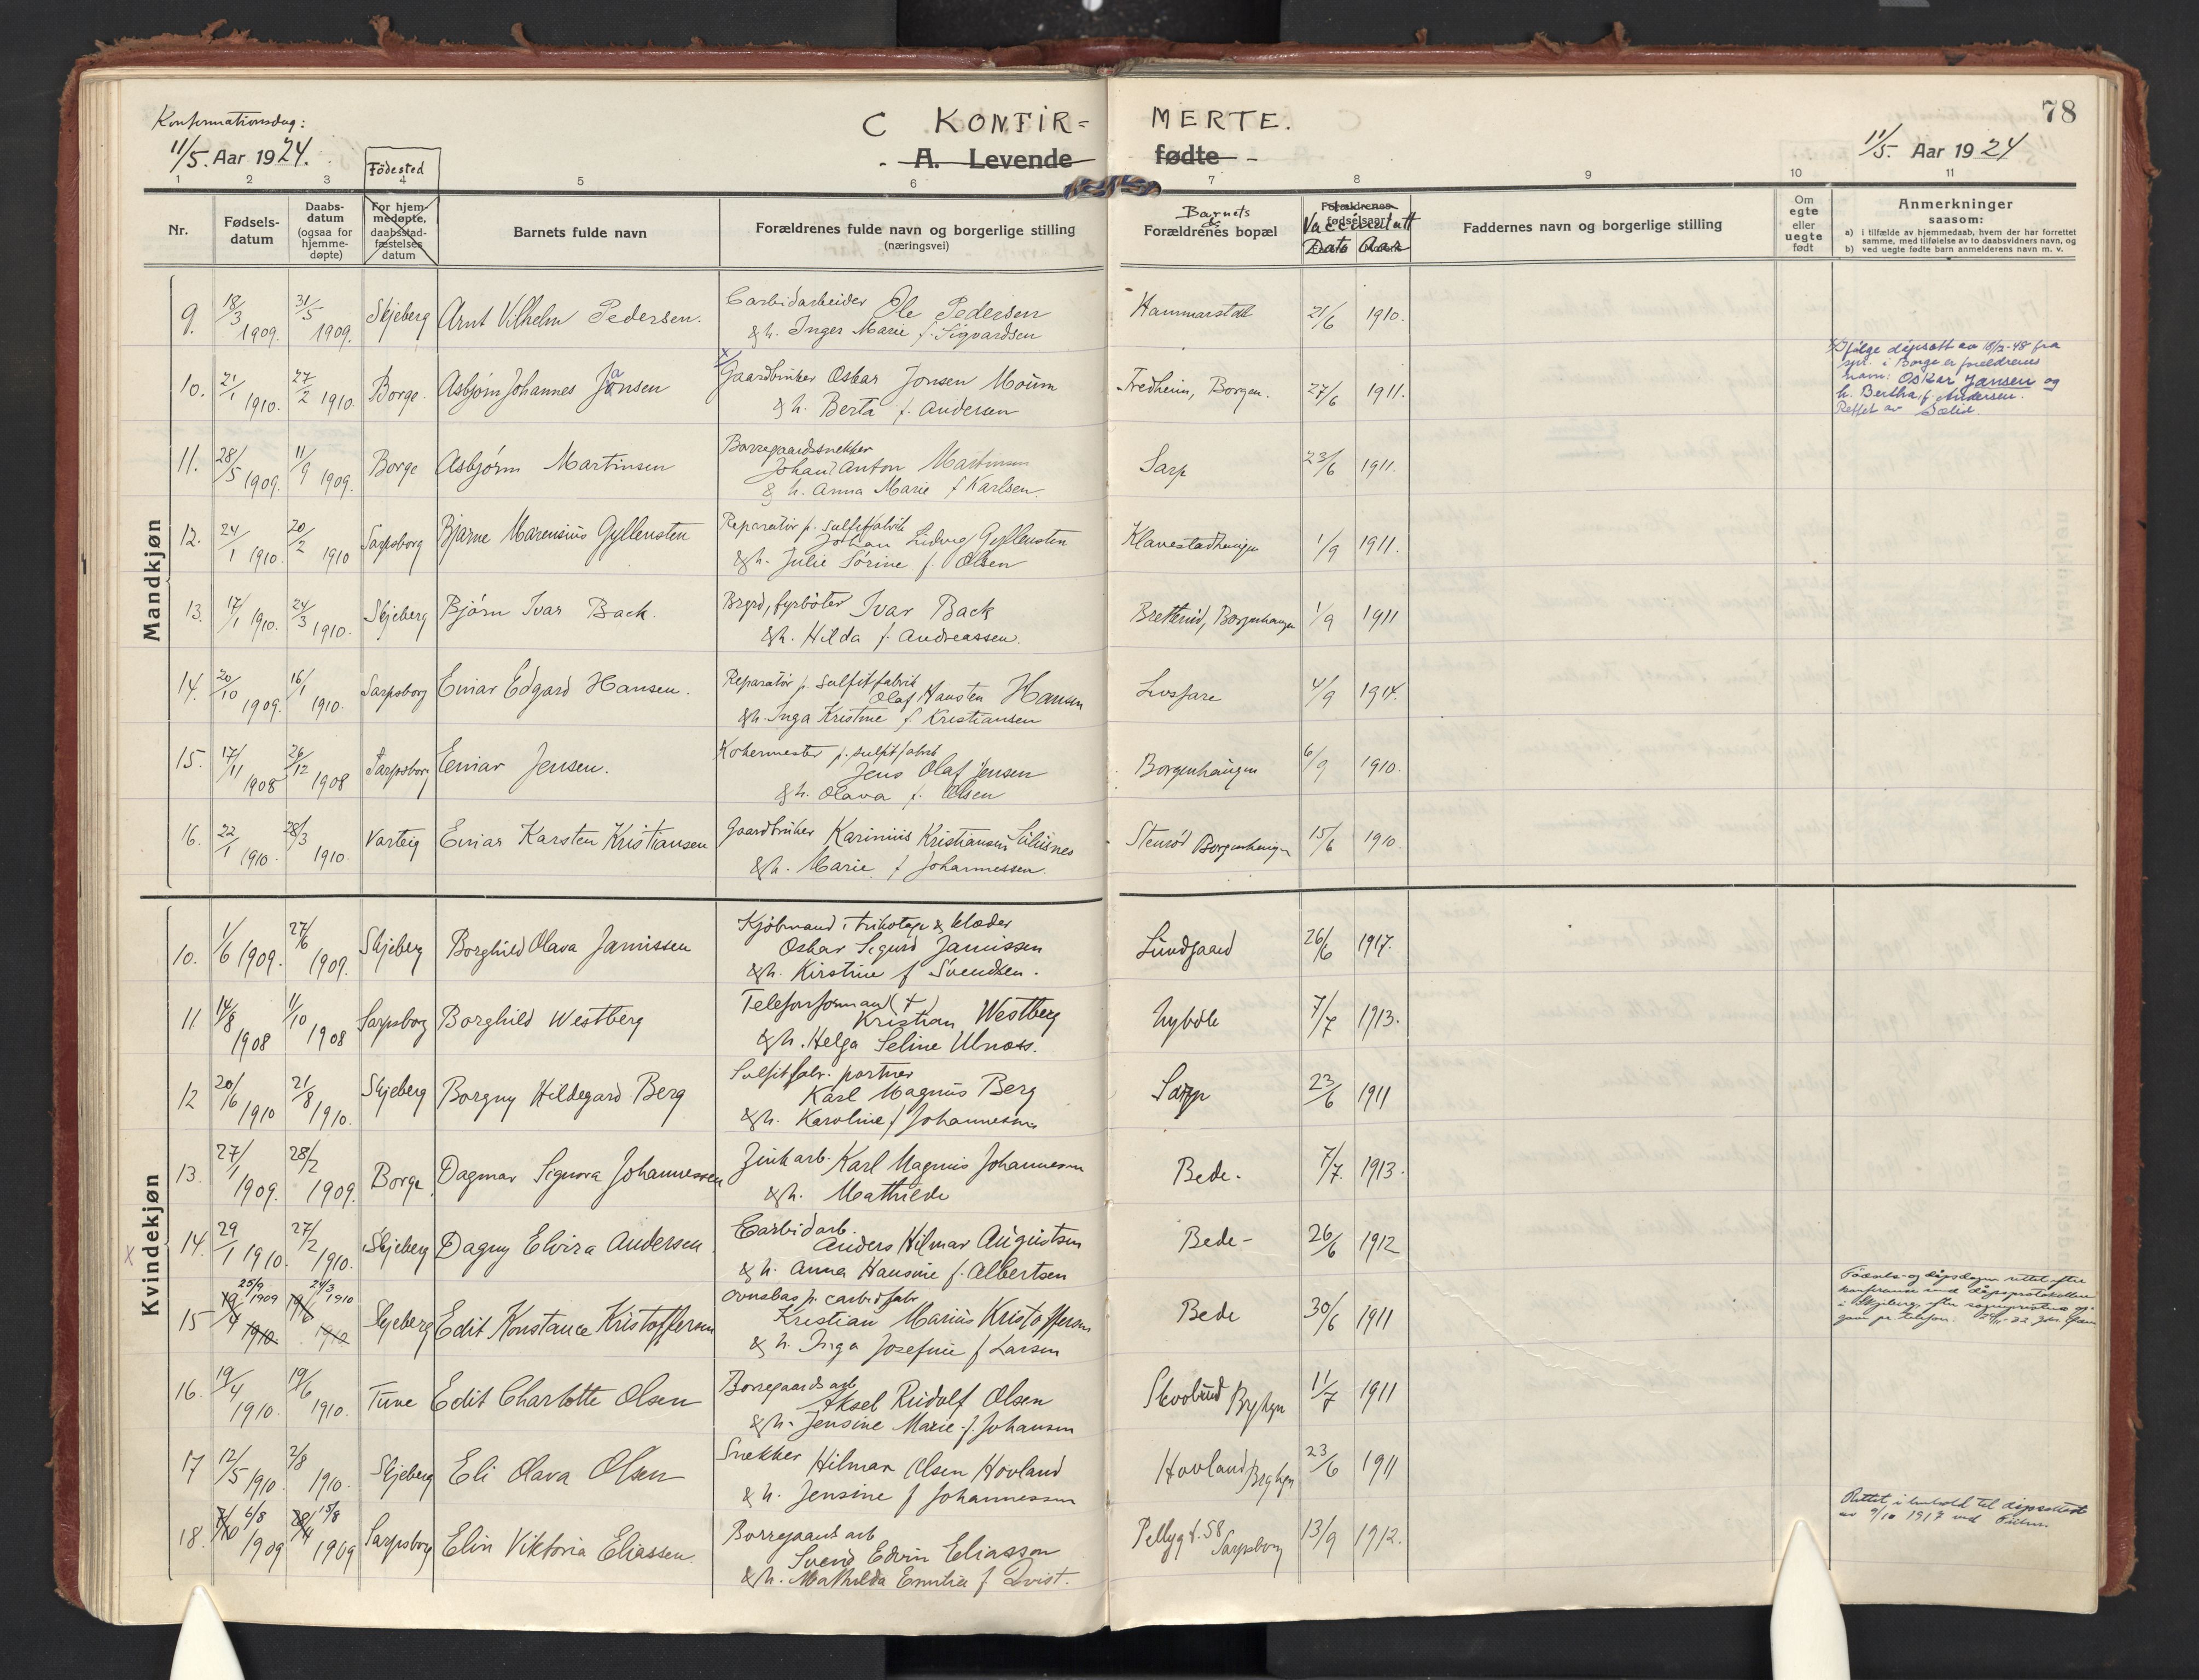 Konfirmationsdag:
11/5. Aar 1924.
C KONFIR=
MERTE.
A. Levende
fødte
78
11/5. Aar 1924
Födested
1 2 3 4 5 6 7 8 9 10 11
Nr.
Fødsels-
datum
Daabs-
datum
(ogsaa for
hjemme-
døpte)
For hjem-
medøpte,
daabsstad-
fæstelses
datum
Barnets fulde navn
Forældrenes fulde navn og borgerlige stilling
(næringsvei)
Barnets
Forældrenes bopæl
Forældrenes
fødselsaar
Dato Aar
Faddernes navn og borgerlige stilling
Om
egte
eller
uegte
født
Anmerkninger
saasom:
a) i tilfælde av hjemmedaab, hvem der har forrettet
samme, med tilføielse av to daabsvidners navn, og
b) ved uegte fødte barn anmelderens navn m. v.
Mandkjøn
9. 18/3 1909. 31/5 1909. Skjeberg Arnt Vilhelm Pedersen.
Carbidarbeider Ole Pedersen
& h. Inger Marie f. Sigvardsen
Hammarstedt 21/6 1910.
10. 21/1 1910. 27/2 1910. Borge. Asbjørn Johannes Jansen
x/ Gaardbruker Oskar Jonsen Moum
& h. Berta f. Andersen
Fredheim, Borgen. 27/6 1911.
x/ Ifølge dåpsatt av 18/2-48 fra
spr. i Borge er foreldrenes
navn: Oskar Jansen og
h. Bertha f. Andersen.
Rettet av
11. 28/5 1909. 11/9 1909. Borge Asbjørn Martinsen
Borregaardssnekker
Johan Anton Martinsen
& h. Anna Marie f Karlsen.
Sarp 23/6 1911.
12. 24/1 1910. 20/2 1910 Sarpsborg Bjarne Marensius Gyllensten
Reparatør p. sulfitfabrik
Johan Ludvig Gyllensten
& h. Julie Sørine f. Olsen
Klavestadhaugen 1/9 1911.
13. 17/1 1910. 24/3 1910. Skjeberg Bjørn Ivar Back.
Brgrd, fyrbøter Ivar Back
& h. Hilda f. Andreassen.
Bretterud, Borgenhaugen 1/9 1911
14. 20/10 1909. 16/1 1910. Sarpsborg Einar Edgard Hansen.
Reparatør p. sulfitfabrik
Olaf Hansten Hansen
& h. Inga Kristine f Kristiansen
4/9 1914.
15. 17/11 1908 26/12 1908 Sarpsborg Einar Jensen.
Kokermester p. sulfitfabrik
Jens Olaf Jensen
& h. Olava f. Olsen
Borgenhaugen 6/9 1910.
16. 22/1 1910. 28/3 1910. Varteig Einar Karsten Kristiansen
Gaardbruker Karinius Kristiansen
& h. Marie f Johannessen.
Stenrød Borgenhaugen 15/6 1910.
Kvindekjøn
10. 1/6 1909. 27/6 1909. Skjeberg Borghild Olava Jamissen
Kjøbmand i trikotage & klæder
Oskar Sigurd Jamissen
& h. Kirstine f Svendsen.
Lundgaard 26/6 1917.
11 14/8 1908 11/10 1908 Sarpsborg Borghild Westberg
Telefonformand (†)
Kristian Westberg
& h. Helga Seline Ulnæss.
Nybøle 7/7 1913.
12 20/6 1910 21/8 1910. Skjeberg Borgny Hildegard Berg
Sulfitfabr. portner
Karl Magnus Berg
& h. Karoline f Johannesen
Sarp 23/6 1911
13. 27/1 1909. 28/2 1909. Borge. Dagmar Signora Johannessen
Zinkarb. Karl Magnus Johannesen
& h. Mathilde
Bede. 7/7. 1913.
x 14. 29/1 1910. 27/2 1910. Skjeberg Dagny Elvira Andersen.
Carbidarb.
Anders Hilmar Augustsen
& h. Anna Hansine f. Albertsen
Bede - 26/6 1912
25/9 1909 24/3 1910
15 19/4 1910 19/6 1910 Skjeberg Edit Konstance Kristoffersen
Ovnsbas p. carbidfabr
Kristian Marius Kristoffersen
& h. Inga Josefine f Larsen
Bede 30/6 1911
Fødsels- og dåpsdagen rettet efter
konferanse med dåpsprotokollen
i Skjeberg, efter sogneprestens op-
gave pr. telefon.
16. 19/4 1910. 19/6 1910. Tune Edit Charlotte Olsen
Borregaards arb
Aksel Rudolf Olsen
& h. Jensine Marie f. Johansen
Skovlund Brghgn 11/7 1911
17 12/5 1910. 2/8 1910. Skjeberg Eli Olava Olsen
Snekker Hilmar Olsen Hovland
& h. Jensine f Johannessen
Hovland Brghgn 23/6 1911
18. 7/10 6/8 1909 15/8 1909 Sarpsborg Elin Viktoria Eliassen.
Borregaard arb
Svend Edvin Eliasson
& h. Mathilda Emilia f Qvist.
Pellygt. 58 Sarpsborg 13/9 1912.
Rettet i henhold til dåpsattest